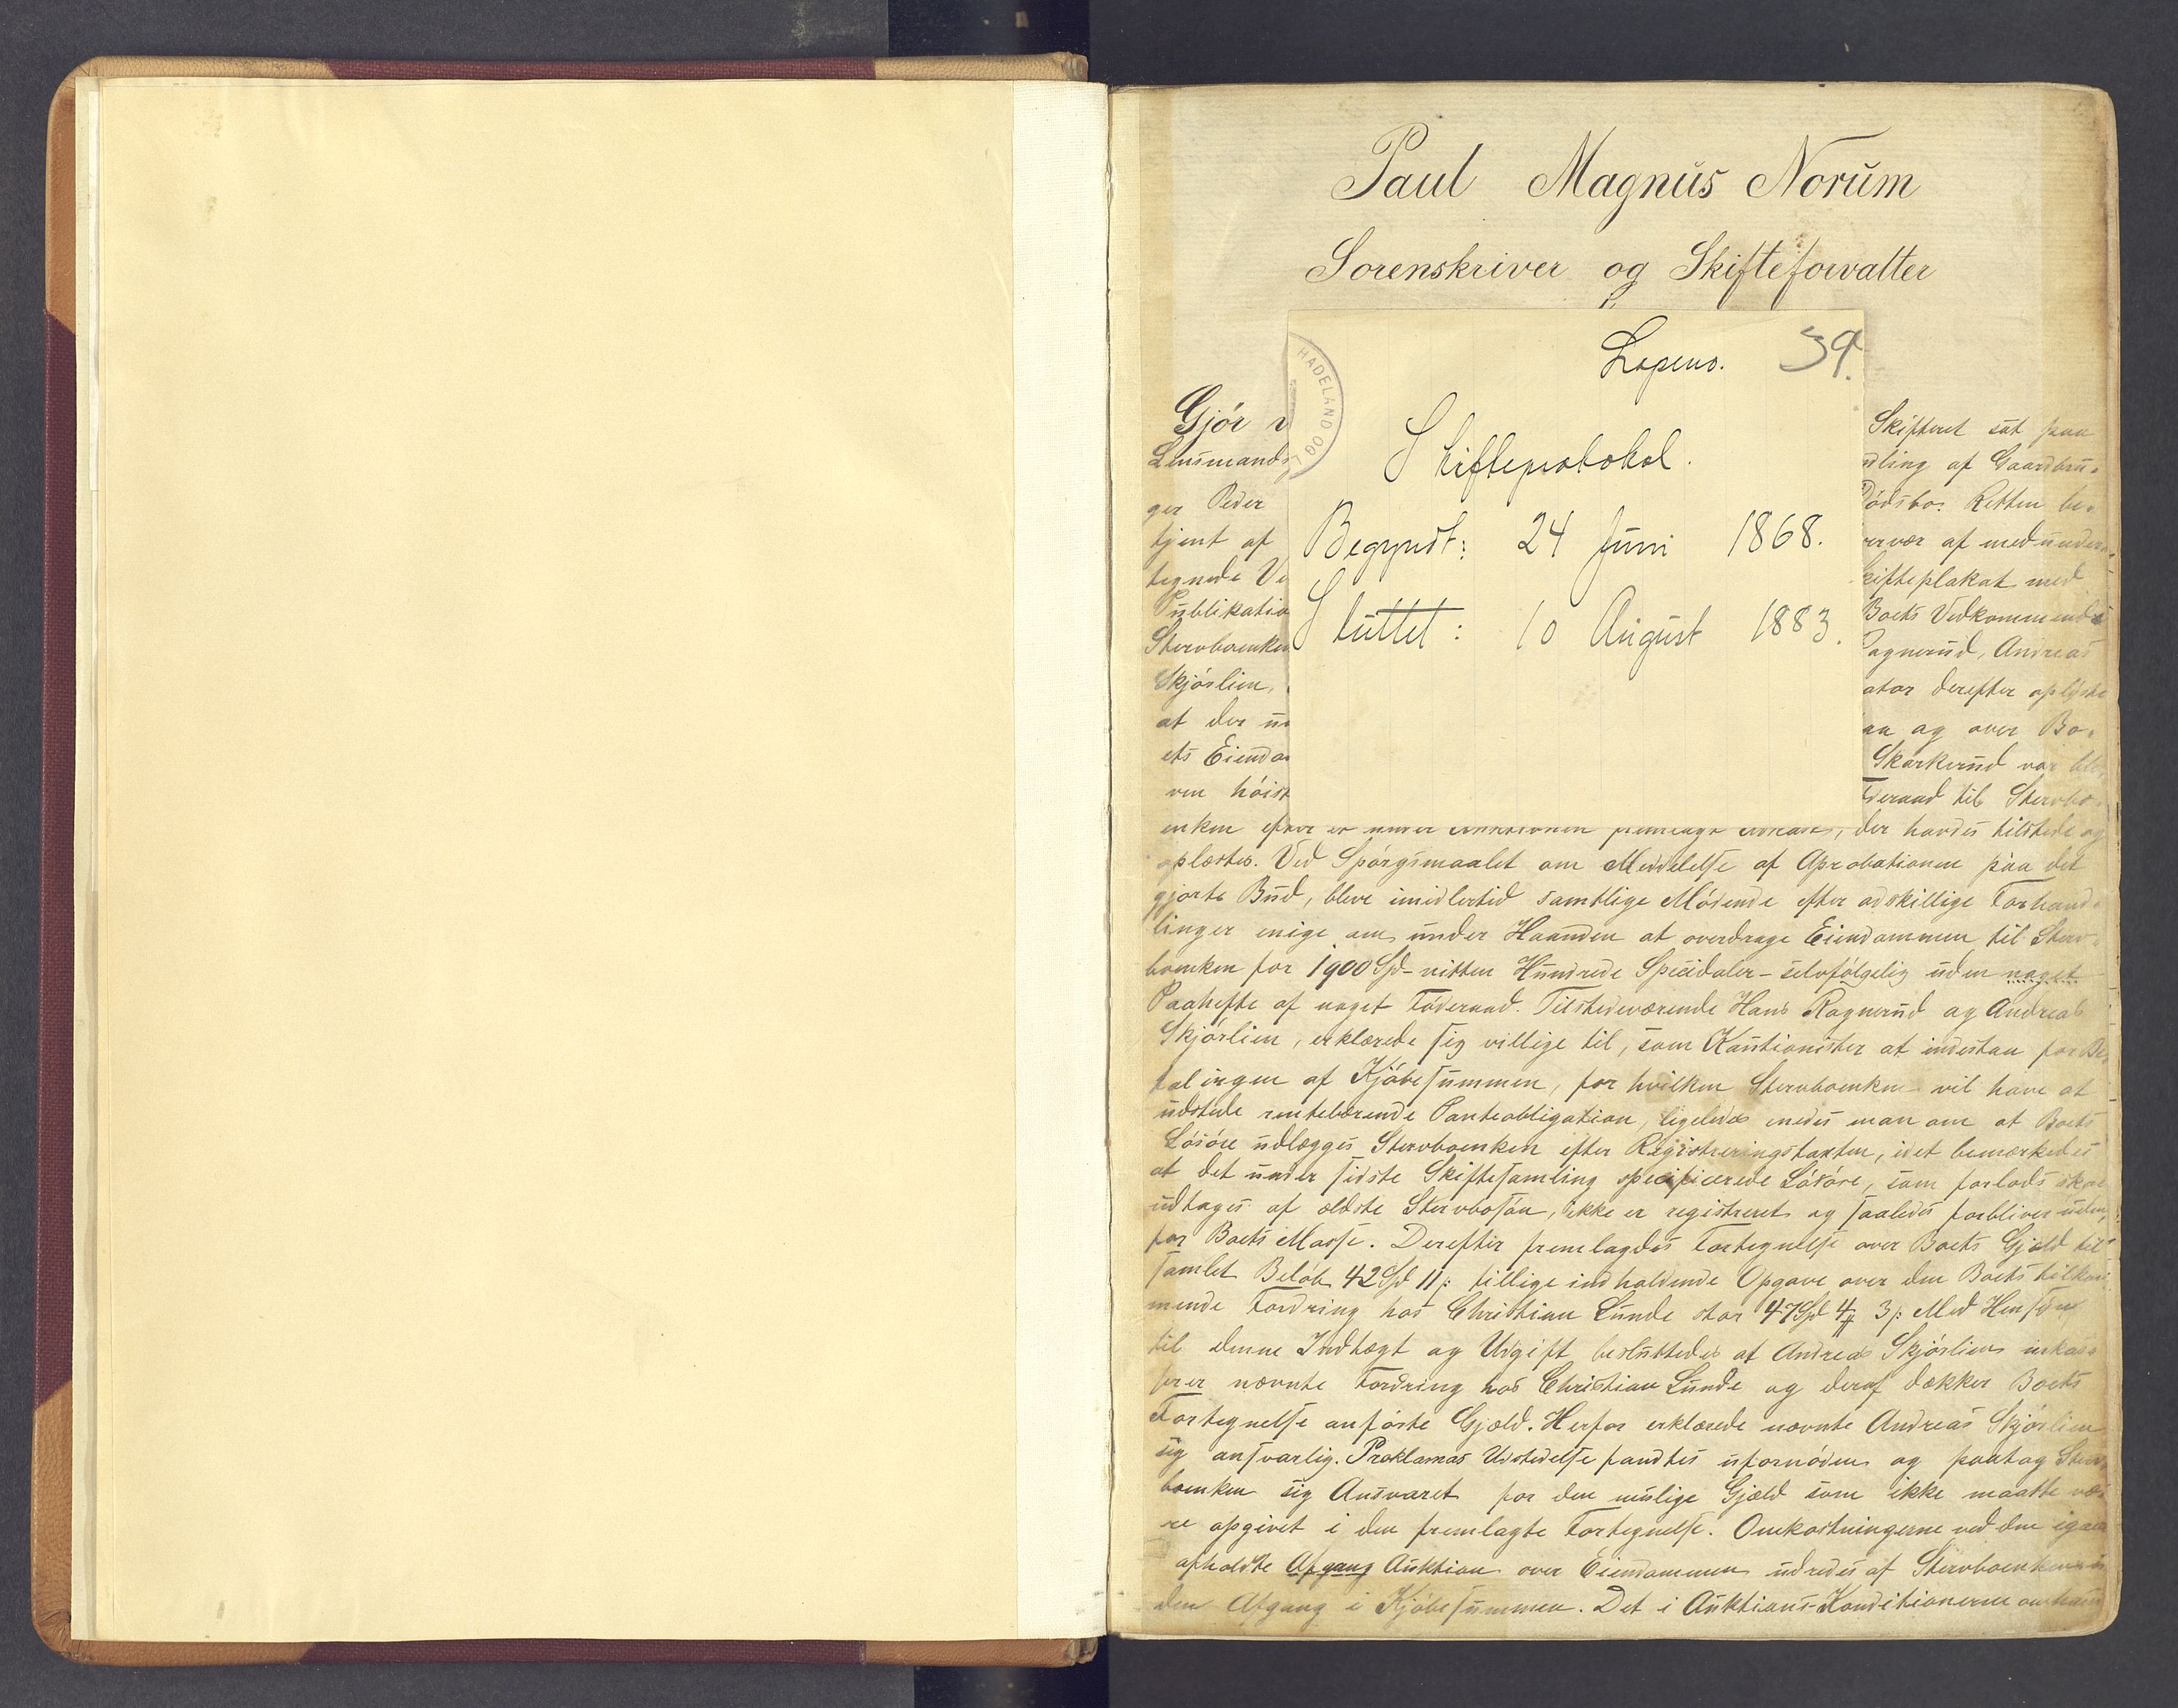 Paul Magnus Norum
Sorenskriver og Skifteforvalter
Løpeno. 39.
HADELAND OG L
Skifteprotokol.
Begyndt: 24 Juni 1868.
Sluttet: 10 August 1883.
Gjør
Skifteret sat paa
Lensmands
dling af Gaardbru-
ger Peder
Dødsbo. Retten be-
tjent af
rvær af medunder-
tegnede
kifteplakat med
Publikatio
Boets Vedkommende
Stervboenken
Ragnerud, Andreas
Skjørlien,
ator derefter oplyste
at der un
aa og over Bo-
ets Eiendom
Skarkerud var ble-
ven høist
Føderaad til Stervbo-
enken efter der havdes tilstede og
oplæstes. Ved Spørgsmaalet om Meddelelse af Aprobationen paa det
gjorte Bud, bleve imidlertid samtlige Mødende efter adskillige Forhand-
linger enige om under Haanden at overdrage Eiendommen til Sterv-
boenken for 1900 Spd - nitten Hundrede Speciedaler - selvfølgelig uden noget
Paahefte af noget Føderaad. Tilstedeværende Hans Ragnerud og Andreas
Skjørlien, erklærede sig villige til, som Kautionister at indestaa for Be-
talingen af Kjøbesummen, for hvilken Stervboenken vil have at
udstede rentebærende Panteobligation, ligeledes enedes man om at Boets
Løsøre udlægges Stervboenken efter Registreringstaxten, idet bemærkedes
at det under sidste Skiftesamling specificerede Løsøre, som forlods skal
udtages af ældste Stervbosøn, ikke er registreret og saaledes forbliver uden-
for Boets Masse. Derefter fremlagdes Fortegnelse over Boets Gjæld til
samlet Beløb 42 Spd 11 s: tillige indholdende Opgave over den Boets tilkom-
mende Fordring hos Christian Lunde stor 47 Spd 4 # 3 s: Med Hensyn
til denne Indtægt og Udgift besluttedes at Andreas Skjørlien inkas-
serer nævnte Fordring hos Christian Lunde og deraf dækker Boets
Fortegnelse anførte Gjæld. Herfor erklærede nævnte Andreas Skjørlien
sig ansvarlig. Proklamas Udstedelse fandtes ufornøden og paatog Sterv-
boenken sig Ansvaret for den mulige Gjæld som ikke maatte væ-
re opgivet i den fremlagte Fortegnelse. Omkostningerne ved den igaar
afholdte Afgang Auktion over Eiendommen udredes af Stervboenken u-
den Afgang i Kjøbesummen. Det i Auktions-Konditionerne omhand